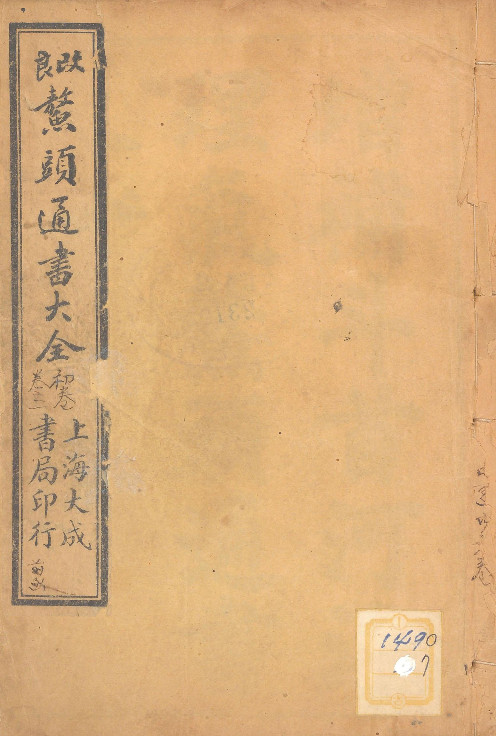 改良
鰲頭通書大全
初卷
卷三
上海大成
書局印行
1490
7